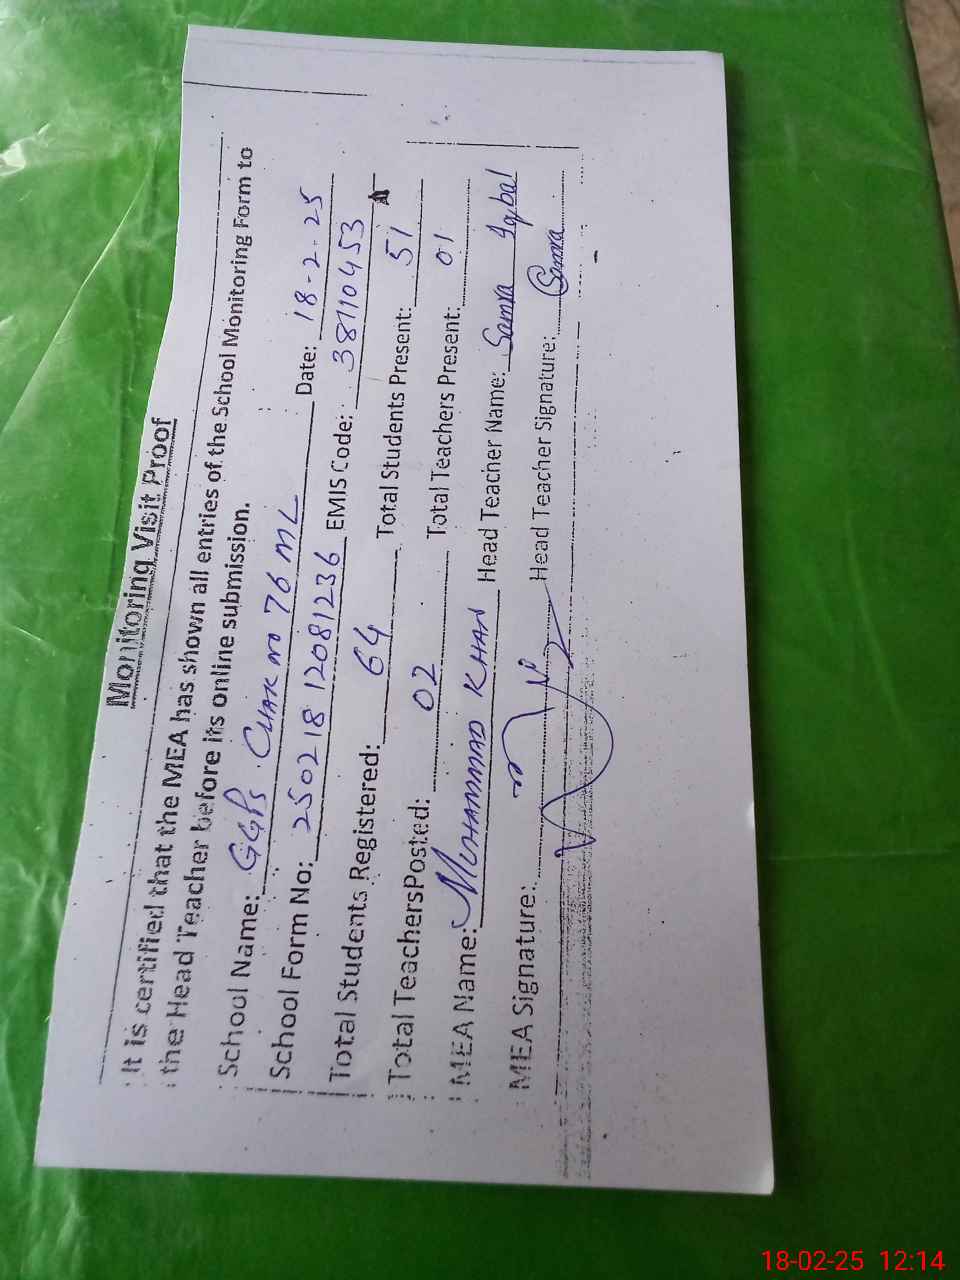 Monitoring Visit Proof
It is certified that the MEA has shown all entries of the School Monitoring Form to
the Head Teacher before its online submission.
School Name: GGPS CHAK NO 76 ML Date: 18-2-25
School Form No: 250218 12081236 EMIS Code: 38110453
Total Students Registered: 64 Total Students Present: 51
Total TeachersPosted: 02 Total Teachers Present: 01
MEA Name: MUHAMMAD KHAN Head Teacher Name: Samra Iqbal
MEA Signature: Head Teacher Signature: Samra
18-02-25 12:14